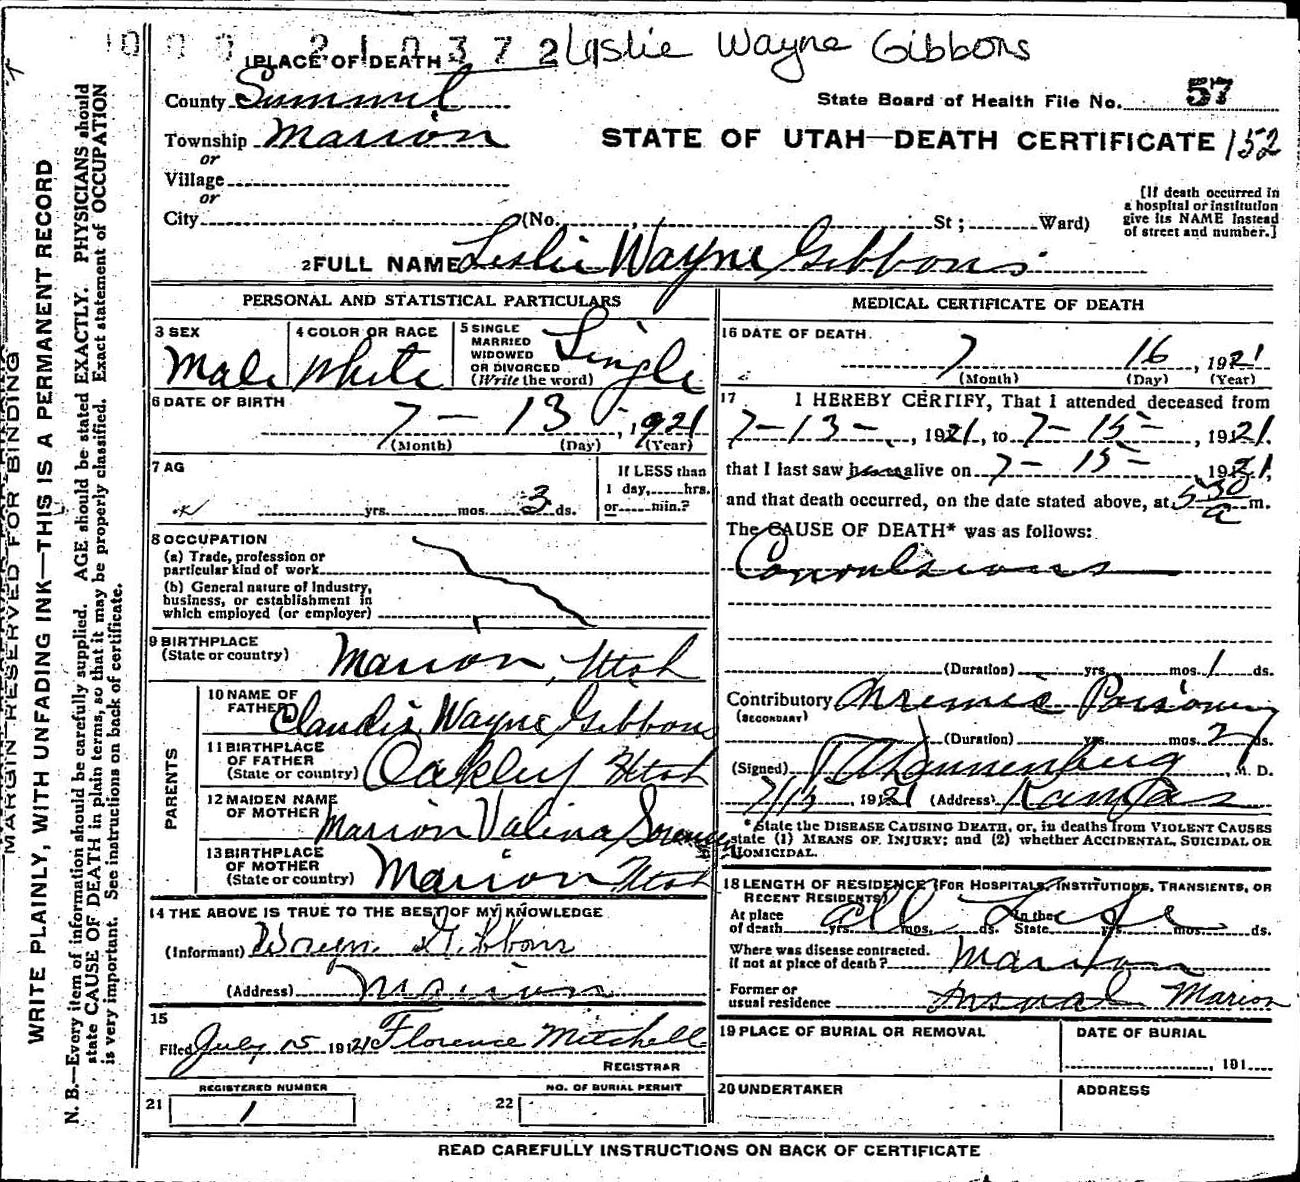 2 1 0 3 7 2 Leslie Wayne Gibbons
1 PLACE OF DEATH
County Summit
State Board of Health File No. 57
Township Marion
STATE OF UTAH—DEATH CERTIFICATE 152
or
Village
or
City (No. St ; Ward)
[If death occurred in
a hospital or institution
give its NAME instead
of street and number.]
2 FULL NAME Leslie Wayne Gibbons
PERSONAL AND STATISTICAL PARTICULARS
3 SEX
Male
4 COLOR OR RACE
White
5 SINGLE
MARRIED
WIDOWED
OR DIVORCED
(Write the word)
Single
6 DATE OF BIRTH
7 - 13 - 1921
(Month) (Day) (Year)
7 AG
yrs. mos. 3 ds.
If LESS than
1 day, hrs.
or min.?
8 OCCUPATION
(a) Trade, profession or
particular kind of work
(b) General nature of Industry,
business, or establishment in
which employed (or employer)
9 BIRTHPLACE
(State or country) Marion, Utah
PARENTS
10 NAME OF
FATHER Claudis Wayne Gibbons
11 BIRTHPLACE
OF FATHER
(State or country) Oakley Utah
12 MAIDEN NAME
OF MOTHER Marion Valina
13 BIRTHPLACE
OF MOTHER
(State or country) Marion Utah
14 THE ABOVE IS TRUE TO THE BEST OF MY KNOWLEDGE
(Informant) Gibbons
(Address) Marion
15
Filed July 15 1921 Florence Mitchell
REGISTRAR
REGISTERED NUMBER
21 1
NO. OF BURIAL PERMIT
22
MEDICAL CERTIFICATE OF DEATH
16 DATE OF DEATH
7 16, 1921
(Month) (Day) (Year)
17 I HEREBY CERTIFY, That I attended deceased from
7-13-, 1921, to 7-15-, 1921.
that I last saw him alive on 7-15-1921,
and that death occurred, on the date stated above, at 5 30 a m.
The CAUSE OF DEATH* was as follows:
Convulsions
(Duration) yrs. mos. 1 ds.
Contributory Uremic Poisoning
(SECONDARY)
(Duration) yrs. mos. 2 ds.
(Signed) , M. D.
1921 (Address) Kamas
* State the DISEASE CAUSING DEATH, or, in deaths from VIOLENT CAUSES
state (1) MEANS OF INJURY; and (2) whether ACCIDENTAL, SUICIDAL OR
HOMICIDAL.
18 LENGTH OF RESIDENCE (FOR HOSPITALS, INSTITUTIONS, TRANSIENTS, OR
RECENT RESIDENTS)
At place
of death yrs. mos. ds. In the State yrs. mos. ds.
all Life
Where was disease contracted.
if not at place of death? Marion
Former or
usual residence Marion
19 PLACE OF BURIAL OR REMOVAL
DATE OF BURIAL
, 191
20 UNDERTAKER
ADDRESS
READ CAREFULLY INSTRUCTIONS ON BACK OF CERTIFICATE
MARGIN RESERVED FOR BINDING
WRITE PLAINLY, WITH UNFADING INK—THIS IS A PERMANENT RECORD
N. B.—Every item of information should be carefully supplied. AGE should be stated EXACTLY. PHYSICIANS should
state CAUSE OF DEATH in plain terms, so that it may be properly classified. Exact statement of OCCUPATION
is very important. See instructions on back of certificate.